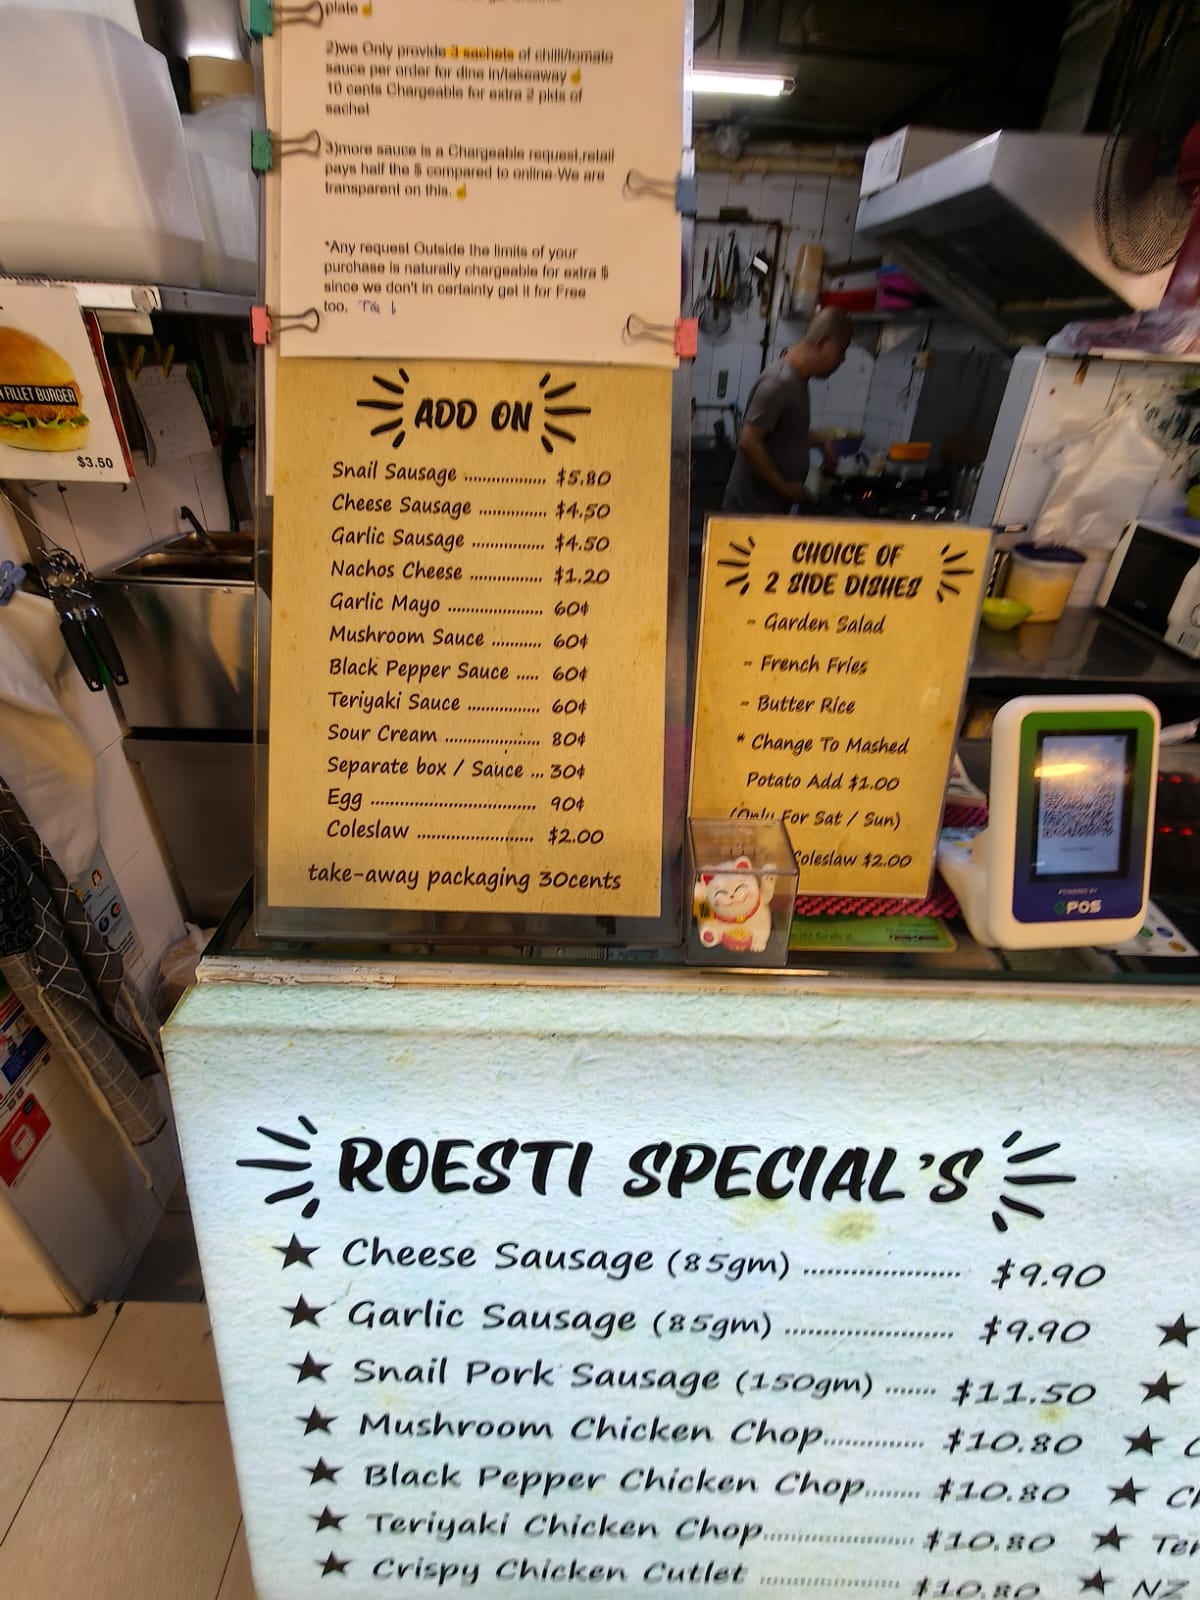 plate
2)we Only provide 3 sachets of chilli/tomato
sauce per order for dine in/takeaway
10 cents Chargeable for extra 2 pkts of
sachet
3)more sauce is a Chargeable request,retail
pays half the $ compared to online-We are
transparent on this.
*Any request Outside the limits of your
purchase is naturally chargeable for extra $
since we don't in certainty get it for Free
too. TQ
FILLET BURGER
$3.50
ADD ON
Snail Sausage .................. $5.80
Cheese Sausage ............... $4.50
Garlic Sausage ................ $4.50
Nachos Cheese ................ $1.20
Garlic Mayo .................... 60¢
Mushroom Sauce ........... 60¢
Black Pepper Sauce ..... 60¢
Teriyaki Sauce ................ 60¢
Sour Cream .................... 80¢
Separate box / Sauce ... 30¢
Egg ................................... 90¢
Coleslaw ......................... $2.00
take-away packaging 30cents
CHOICE OF
2 SIDE DISHES
- Garden Salad
- French Fries
- Butter Rice
* Change To Mashed
Potato Add $1.00
(Only For Sat / Sun)
Coleslaw $2.00
POWERED BY
POS
ROESTI SPECIAL'S
★ Cheese Sausage (85gm) ...................... $9.90
★ Garlic Sausage (85gm) ........................ $9.90
★ Snail Pork Sausage (150gm) ....... $11.50
★ Mushroom Chicken Chop.............. $10.80
★ Black Pepper Chicken Chop........ $10.80
★ Teriyaki Chicken Chop..................... $10.80
★ Crispy Chicken Cutlet .................... $10.80
NZ